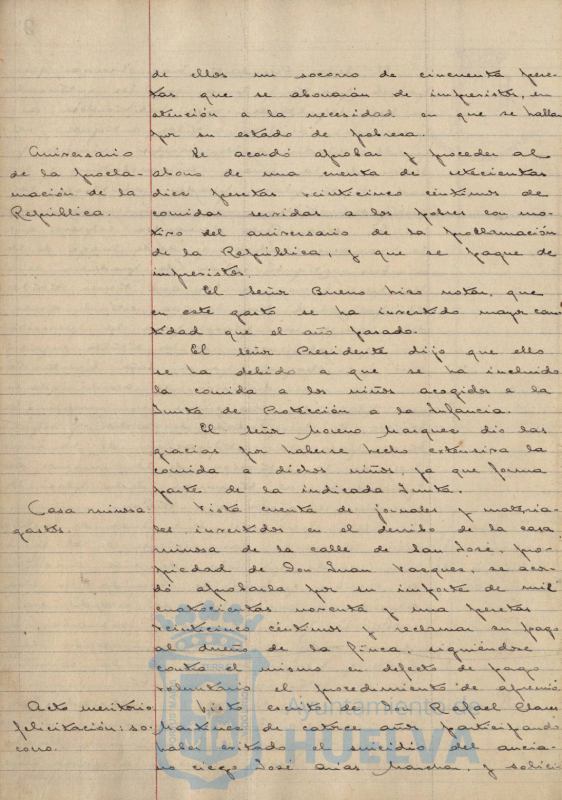 de ellos un socorro de cincuenta pese-
tas que se abonarán de imprevistos, en
atención a la necesidad en que se hallan
por su estado de pobresa.
Aniversario
de la procla-
mación de la
República.
Se acordó aprobar y proceder al
abono de una cuenta de setecientas
diez pesetas veinticinco céntimos de
comidas servidas a los pobres con mo-
tivo del aniversario de la proclamación
de la República, y que se pague de
imprevistos.
El Señor Bueno hizo notar, que
en este gasto se ha invertido mayor can-
tidad que el año pasado.
El Señor Presidente dijo que ello
se ha debido a que se ha incluido
la comida a los niños acogidos a la
Junta de Protección a la Infancia.
El Señor Moreno Marquez dio las
gracias por haberse hecho extensiva la
comida a dichos niños, ya que forma
parte de la indicada Junta.
Casa ruinosa
gastos.
Vista cuenta de jornales y materia-
les invertidos en el derribo de la casa
ruinosa de la calle de San José, pro-
piedad de Don Juan Vazques, se acor-
dó aprobarla por su importe de mil
cuatrocientas noventa y una pesetas
veinticinco céntimos y reclamar su pago
al dueño de la finca, siguiéndose
contra el mismo en defecto de pago
voluntario el procedimiento de apremio.
Acto meritorio
felicitación: so-
corro.
Visto escrito de Don Rafael
Martinez de catorce años participando
haber evitado el suicidio del ancia-
no ciego José Arias, y solici-
Ayuntamiento de
HUELVA